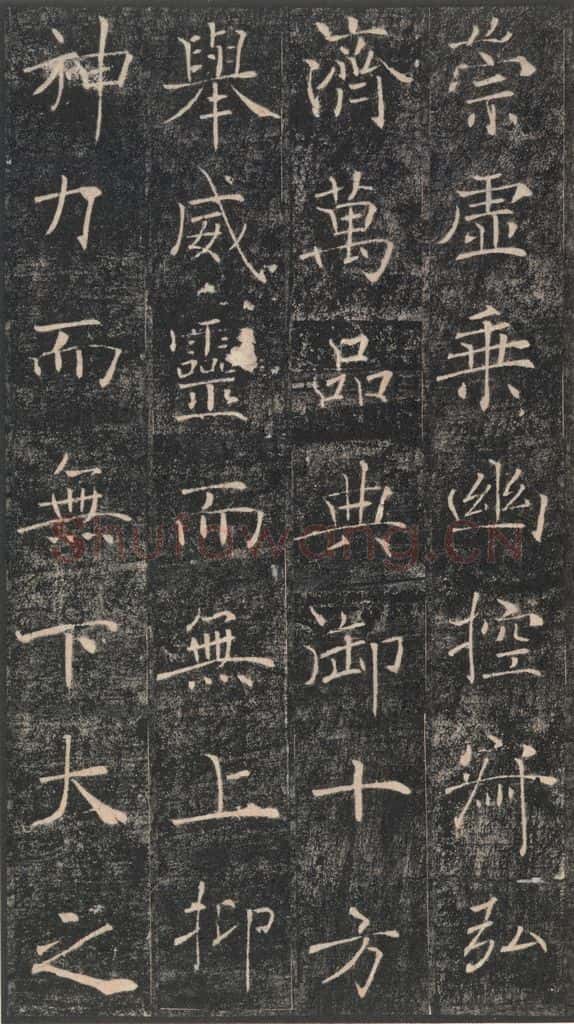 崇虛乗幽控寂弘
濟萬品典御十方
舉威靈而無上抑
神力而無下大之
Shufawang.CN